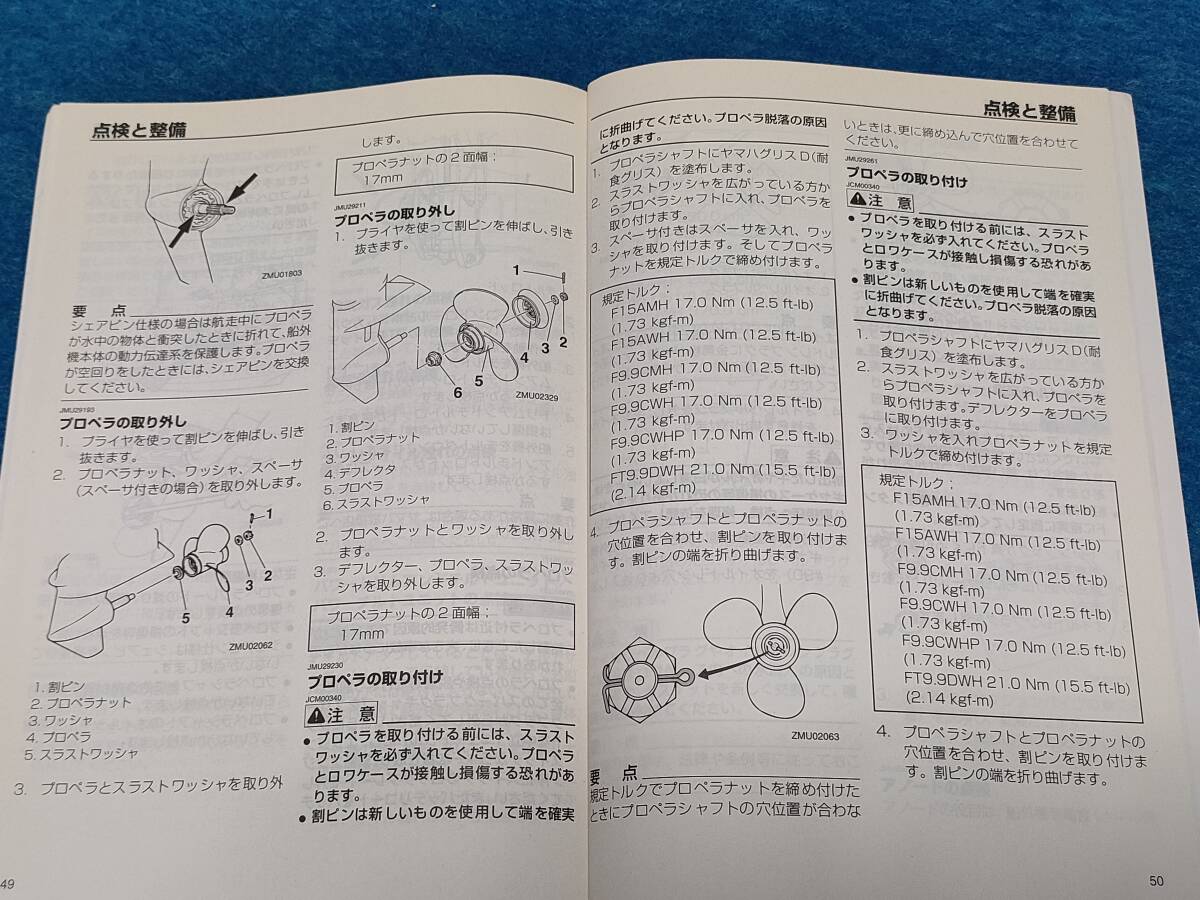 点検と整備
ZMU01803
要 点
シェアピン仕様の場合は航走中にプロペラ
が水中の物体と衝突したときに折れて、船外
機本体の動力伝達系を保護します。プロペラ
が空回りをしたときには、シェアピンを交換
してください。
JMU29193
プロペラの取り外し
1. プライヤを使って割ピンを伸ばし、引き
抜きます。
2. プロペラナット、ワッシャ、スペーサ
(スペーサ付きの場合)を取り外します。
1
2
3
4
5
ZMU02062
1. 割ピン
2. プロペラナット
3. ワッシャ
4. プロペラ
5. スラストワッシャ
3. プロペラとスラストワッシャを取り外
49
します。
プロペラナットの2面幅:
17mm
JMU29211
プロペラの取り外し
1. プライヤを使って割ピンを伸ばし、引き
抜きます。
1
2
3
4
5
6
ZMU02329
1. 割ピン
2. プロペラナット
3. ワッシャ
4. デフレクタ
5. プロペラ
6. スラストワッシャ
2. プロペラナットとワッシャを取り外し
ます。
3. デフレクター、プロペラ、スラストワッ
シャを取り外します。
プロペラナットの2面幅:
17mm
JMU29230
プロペラの取り付け
JCM00340
注 意
● プロペラを取り付ける前には、スラスト
ワッシャを必ず入れてください。プロペラ
とロワケースが接触し損傷する恐れがあ
ります。
● 割ピンは新しいものを使用して端を確実
に折曲げてください。プロペラ脱落の原因
となります。
1. プロペラシャフトにヤマハグリスD(耐
食グリス)を塗布します。
2. スラストワッシャを広がっている方か
らプロペラシャフトに入れ、プロペラを
取り付けます。
3. スペーサ付きはスペーサを入れ、ワッ
シャを取り付けます。そしてプロペラ
ナットを規定トルクで締め付けます。
規定トルク:
F15AMH 17.0 Nm (12.5 ft-lb)
(1.73 kgf-m)
F15AWH 17.0 Nm (12.5 ft-lb)
(1.73 kgf-m)
F9.9CMH 17.0 Nm (12.5 ft-lb)
(1.73 kgf-m)
F9.9CWH 17.0 Nm (12.5 ft-lb)
(1.73 kgf-m)
F9.9CWHP 17.0 Nm (12.5 ft-lb)
(1.73 kgf-m)
FT9.9DWH 21.0 Nm (15.5 ft-lb)
(2.14 kgf-m)
4. プロペラシャフトとプロペラナットの
穴位置を合わせ、割ピンを取り付けま
す。割ピンの端を折り曲げます。
ZMU02063
要 点
規定トルクでプロペラナットを締め付けた
ときにプロペラシャフトの穴位置が合わな
点検と整備
いときは、更に締め込んで穴位置を合わせて
ください。
JMU29261
プロペラの取り付け
JCM00340
注 意
● プロペラを取り付ける前には、スラスト
ワッシャを必ず入れてください。プロペラ
とロワケースが接触し損傷する恐れがあ
ります。
● 割ピンは新しいものを使用して端を確実
に折曲げてください。プロペラ脱落の原因
となります。
1. プロペラシャフトにヤマハグリスD(耐
食グリス)を塗布します。
2. スラストワッシャを広がっている方か
らプロペラシャフトに入れ、プロペラを
取り付けます。デフレクターをプロペラ
に取り付けます。
3. ワッシャを入れプロペラナットを規定
トルクで締め付けます。
規定トルク:
F15AMH 17.0 Nm (12.5 ft-lb)
(1.73 kgf-m)
F15AWH 17.0 Nm (12.5 ft-lb)
(1.73 kgf-m)
F9.9CMH 17.0 Nm (12.5 ft-lb)
(1.73 kgf-m)
F9.9CWH 17.0 Nm (12.5 ft-lb)
(1.73 kgf-m)
F9.9CWHP 17.0 Nm (12.5 ft-lb)
(1.73 kgf-m)
FT9.9DWH 21.0 Nm (15.5 ft-lb)
(2.14 kgf-m)
4. プロペラシャフトとプロペラナットの
穴位置を合わせ、割ピンを取り付けま
す。割ピンの端を折り曲げます。
50